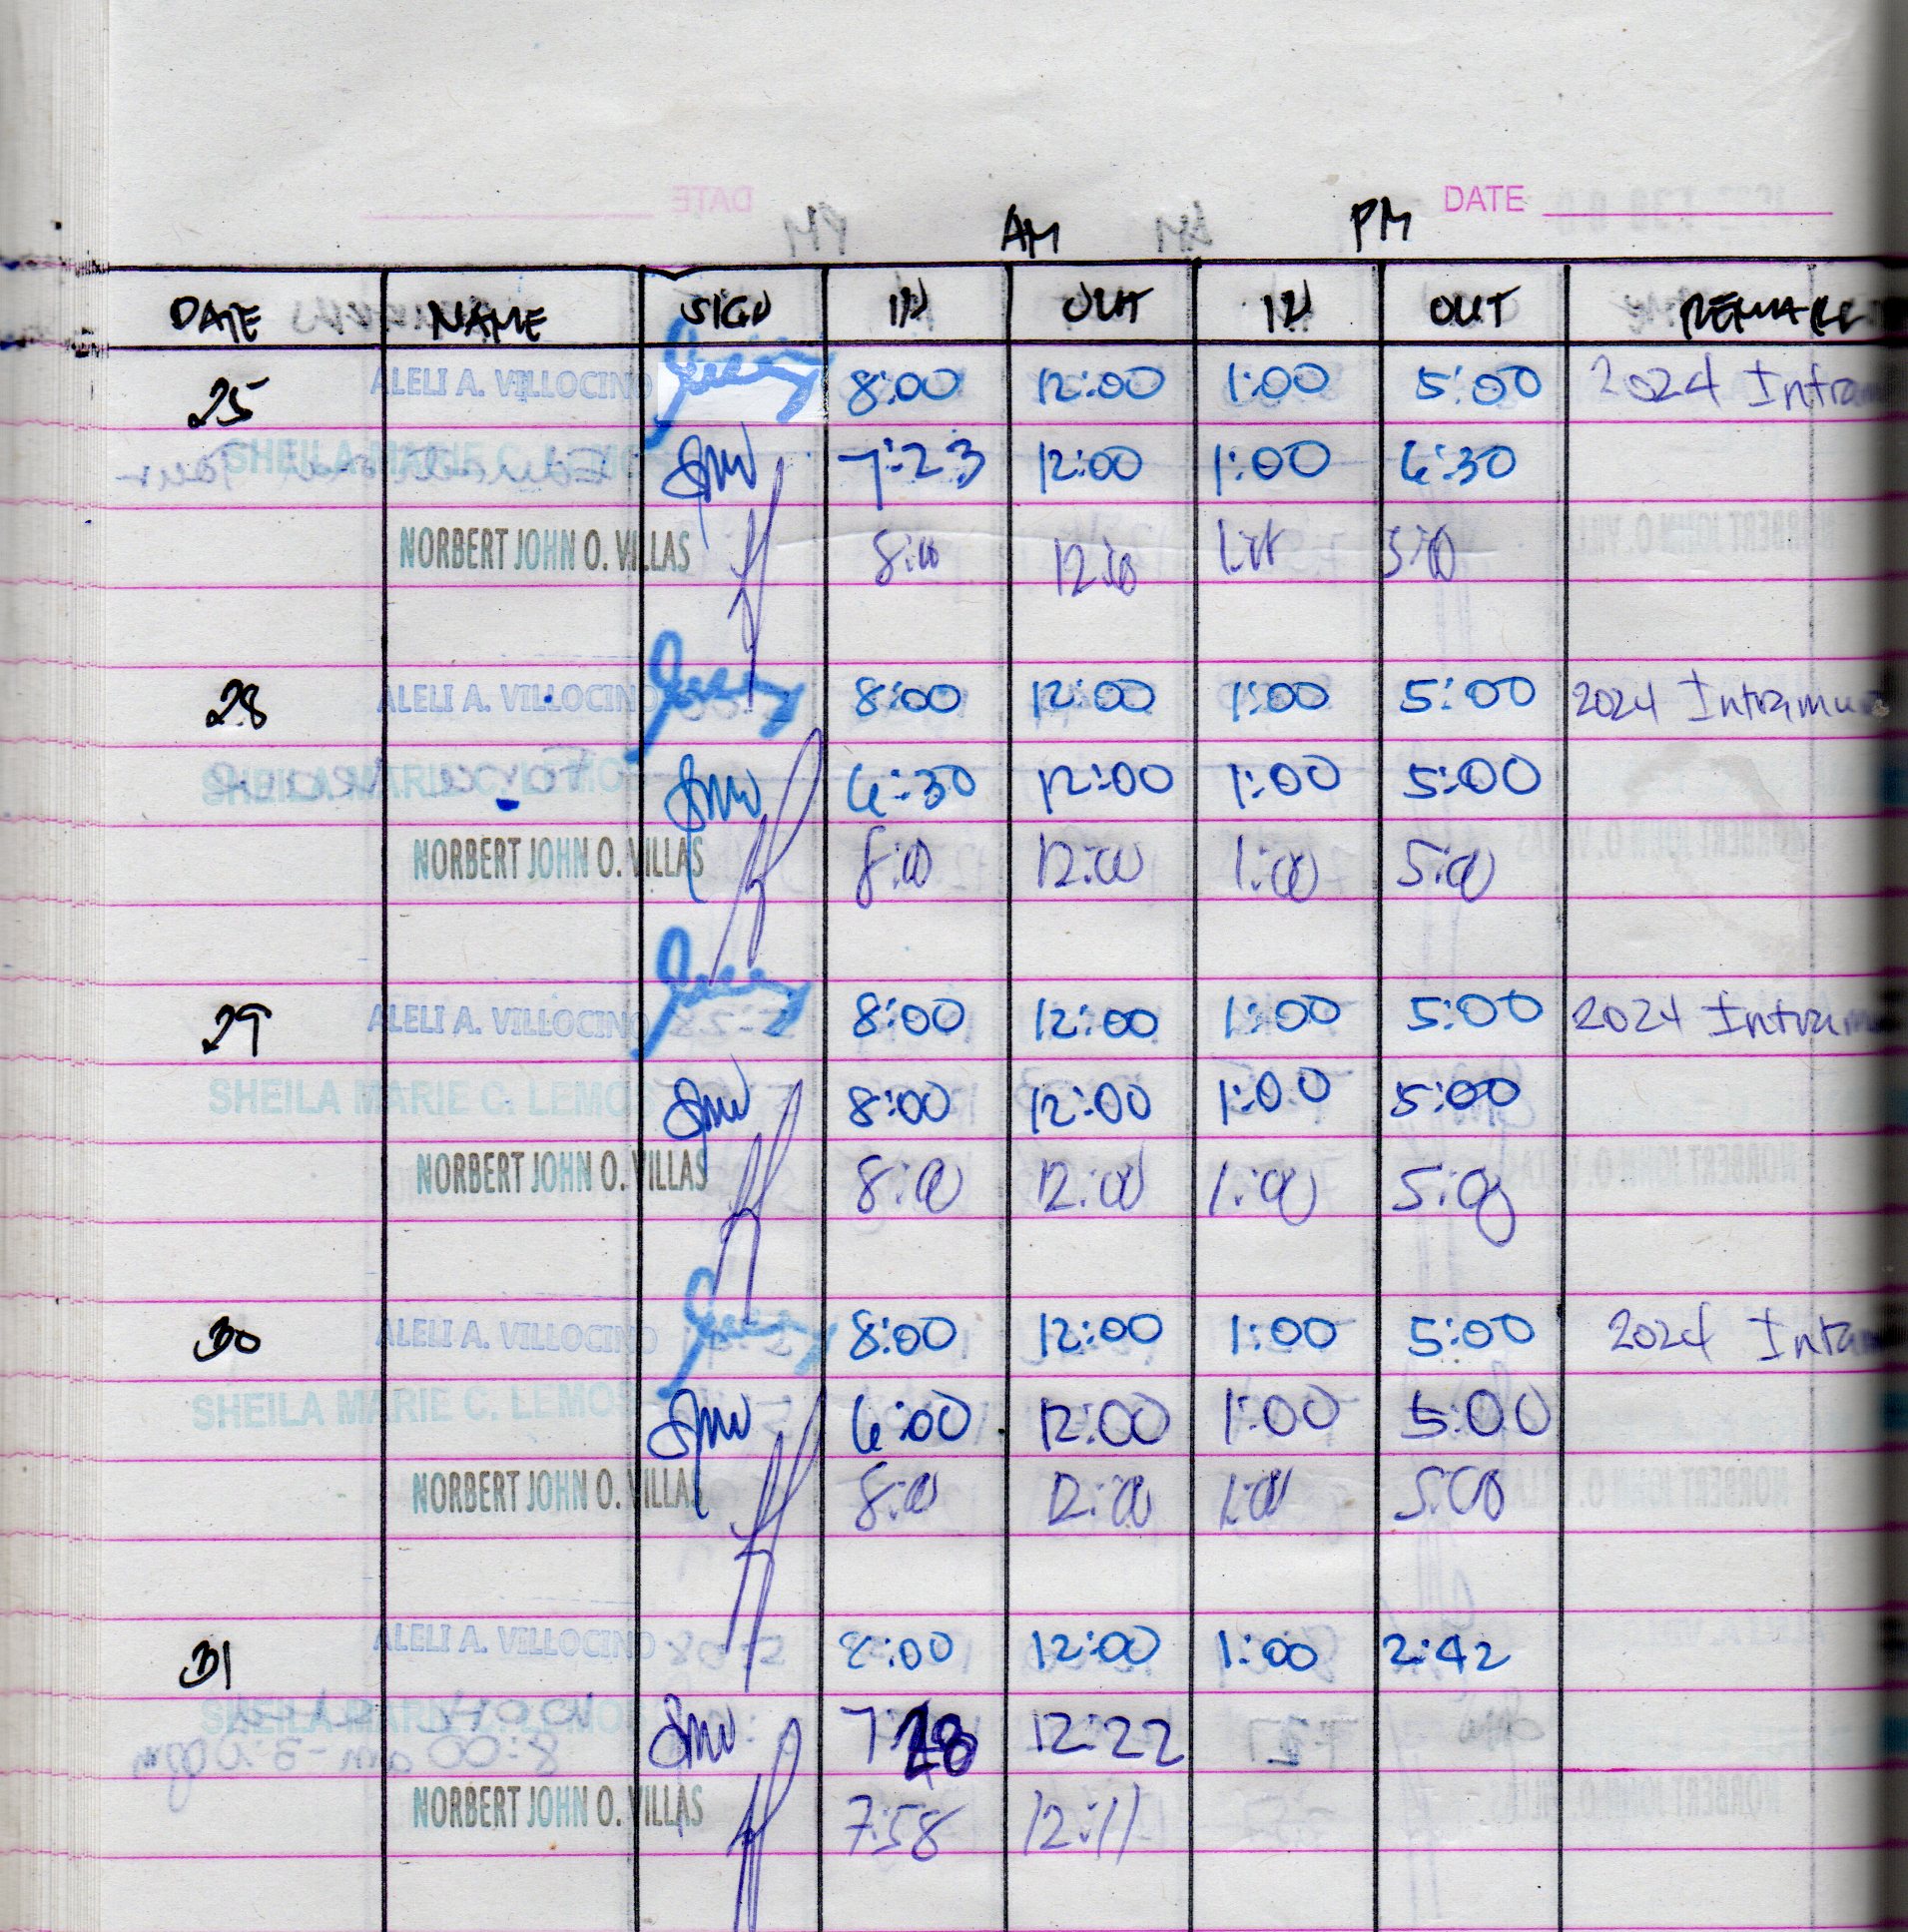 DATE
AM PM
DATE NAME SIGN IN OUT IN OUT REMARK
25 ALELI A. VILLOCINO 8:00 12:00 1:00 5:00 2024 Intram
SHEILA MARIE C. LEMOS 7:23 12:00 1:00 6:30
NORBERT JOHN O. VILLAS 8:00 12:00 1:00 5:00
28 ALELI A. VILLOCINO 8:00 12:00 1:00 5:00 2024 Intramu
SHEILA MARIE C. LEMOS 6:30 12:00 1:00 5:00
NORBERT JOHN O. VILLAS 8:00 12:00 1:00 5:00
29 ALELI A. VILLOCINO 8:00 12:00 1:00 5:00 2024 Intram
SHEILA MARIE C. LEMOS 8:00 12:00 1:00 5:00
NORBERT JOHN O. VILLAS 8:00 12:00 1:00 5:00
30 ALELI A. VILLOCINO 8:00 12:00 1:00 5:00 2024 Intra
SHEILA MARIE C. LEMOS 6:00 12:00 1:00 5:00
NORBERT JOHN O. VILLAS 8:00 12:00 1:00 5:00
31 ALELI A. VILLOCINO 8:00 12:00 1:00 2:42
SHEILA MARIE C. LEMOS 12:22
NORBERT JOHN O. VILLAS 7:58 12:11